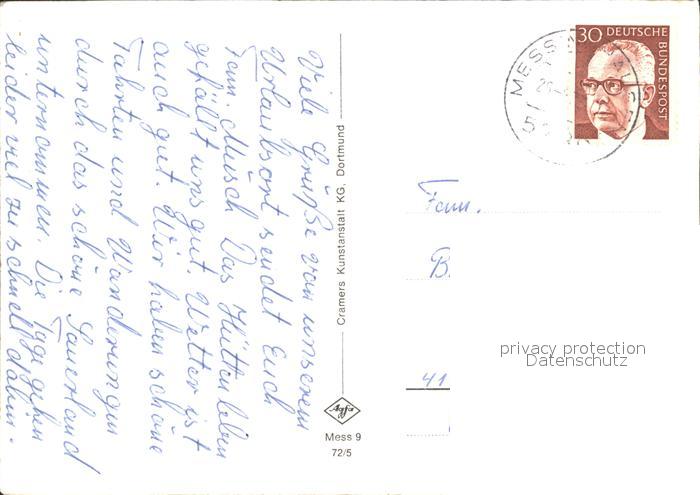 Viele Grüße von unserem
Urlaubsort sendet Euch
Fam. Müsch Das Hüttenleben
gefällt uns gut. Wetter ist
auch gut. Wir haben schöne
Fahrten und Wanderungen
durch das schöne Sauerland
unternommen. Die Tage gehen
leider viel zu schnell dahin.
Cramers Kunstanstalt KG, Dortmund
Agfa
Mess 9
72/5
30 DEUTSCHE
BUNDESPOST
MESS
Fam.
B.
privacy protection
Datenschutz
41